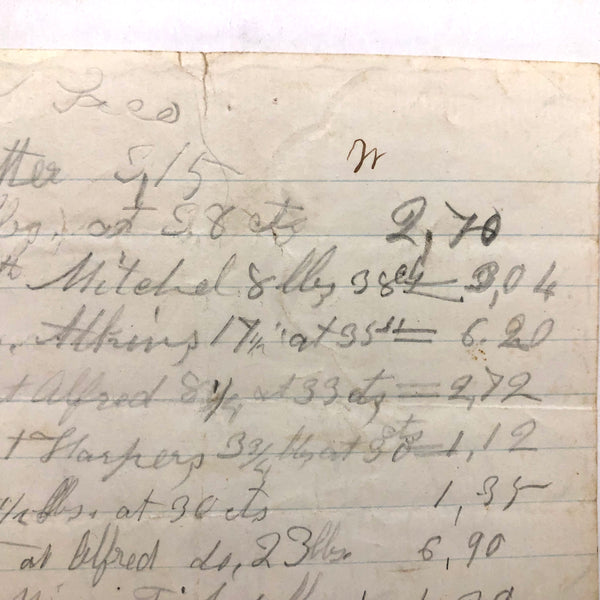 Geo
W
tter 3,15
lbs, at 38 cts 2,70
th Mitchel 8 lbs, 38 cts = 3,04
Atkins, 17 1/2 " at 35 cts = 6.20
t Alfred 8 1/4 at 33 cts = 2,72
t Harpers, 3 3/4 lbs, at 30 cts = 1,12
1/2 lbs. at 30 cts 1,35
at Alfred do, 23 lbs. 6,90